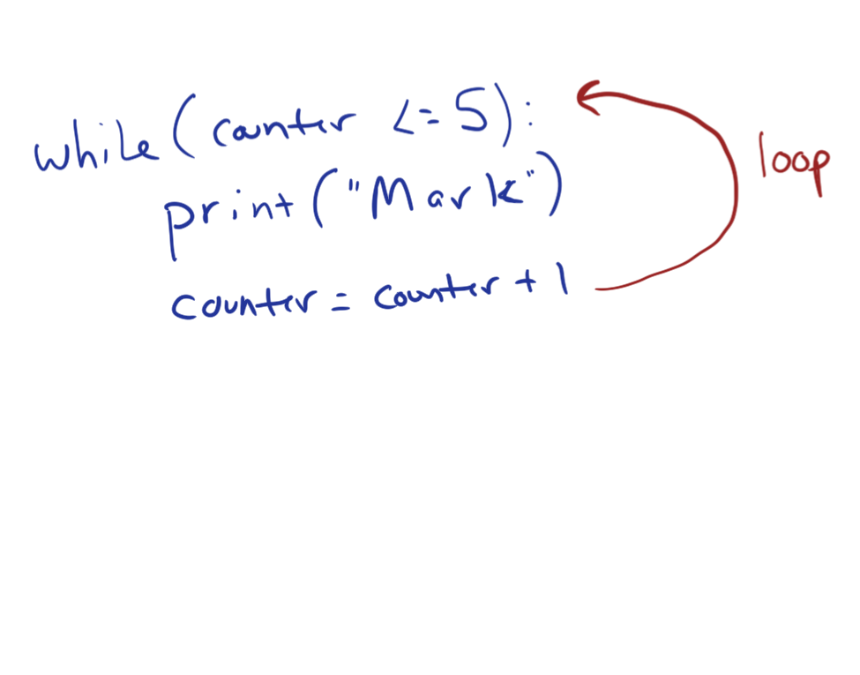 while(counter <=5):
print("Mark")
counter = counter + 1
loop